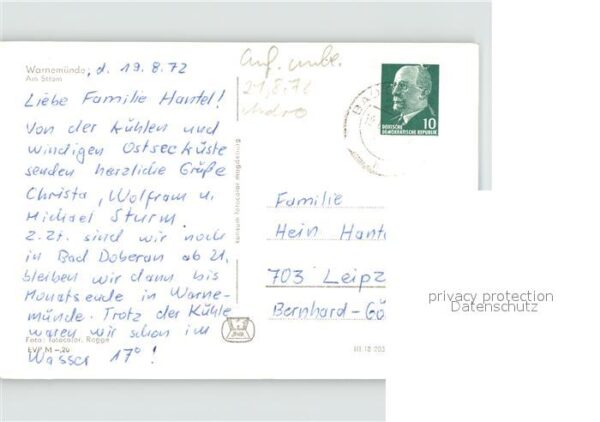 Warnemünde, d. 19.8.72
Am Strom
Liebe Familie Hantel!
Von der kühlen und
windigen Ostseeküste
senden herzliche Grüße
Christa, Wolfram u.
Michael Sturm.
Z.Zt. sind wir noch
in Bad Doberan ab 21.
bleiben wir dann bis
Monatsende in Warne-
münde. Trotz der Kühle
waren wir schon im
Wasser 17° !
Foto: fotocolor, Rogge
EVP M -,20
21.8.72
10
DEUTSCHE
DEMOKRATISCHE REPUBLIK
BAD
Familie
Hein Hante
703 Leipz
Bernhard-Gö
privacy protection
Datenschutz